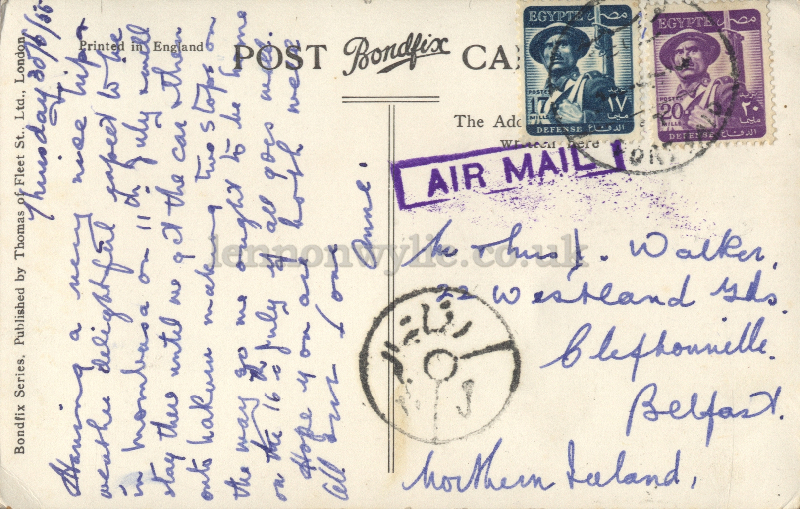 Printed in England
POST Bondfix CA
The Add
W Here
Bondfix Series, Published by Thomas of Fleet St., Ltd., London
EGYPTE
POSTES بريد
17 ١٧
MILLS مليما
DEFENSE الدفاع
EGYPTE
POSTES بريد
20 ٢٠
MILLS مليما
DEFENSE الدفاع
AIR MAIL
Thursday 30/6/55
Having a very nice trip &
weather delightful expect to be
in Mombasa on 11th July will
stay there until we get the car & then
onto Nakuru making two stops on
the way so we ought to be home
on the 16th July if all goes well.
Hope you are both well
All our love
Anne.
Mr & Mrs J. Walker.
22 Westland Gds.
Cliftonville.
Belfast.
Northern Ireland,
lennonwylie.co.uk